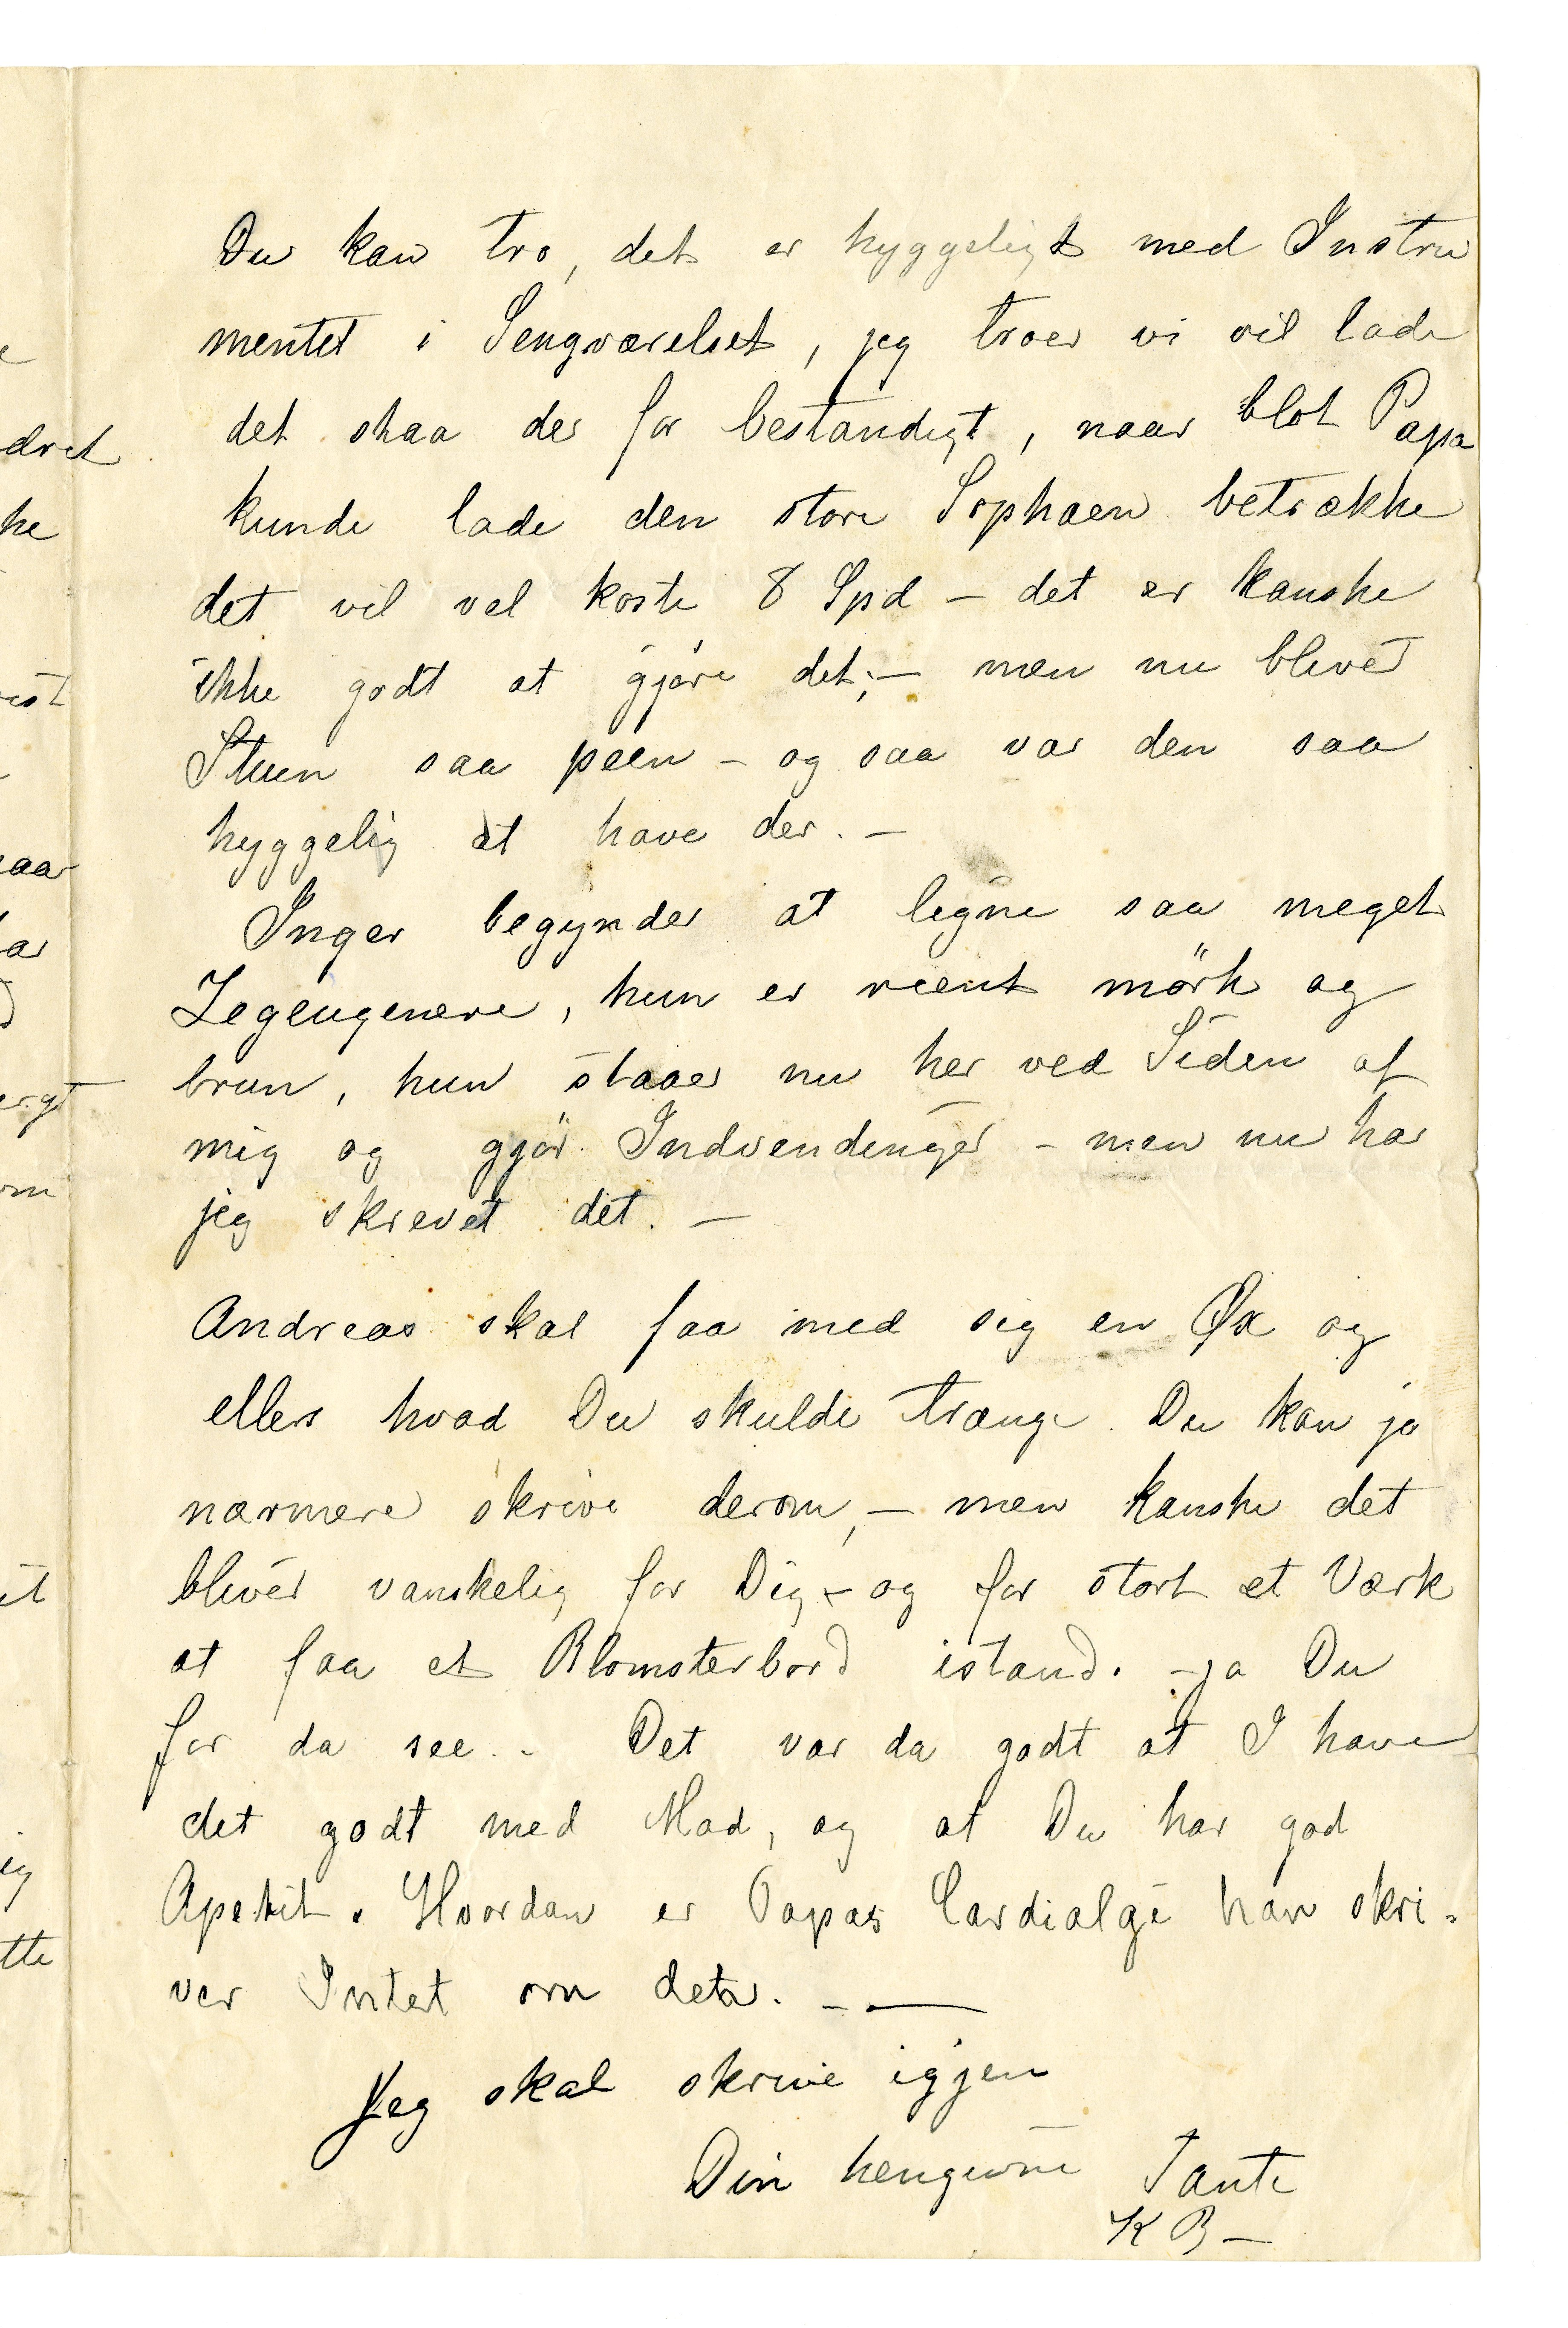 Du kan tro, det er hyggeligt med Instru
mentet i Sengværelset, jeg troer vi vil lade
det staa der for bestandigt, naar blot Papa
kunde lade den store Sophaen betrække
det vil vel koste 8 Spd – det er kanske
ikke godt at gjøre det; – men nu blever
Stuen saa peen – og saa var den saa
hyggelig at have der. –
Inger begynder at ligne saa meget
hun er reent mörk og
brun, hun staaer nu her ved Siden af
mig og gjör Indvendinger – men nu har
jeg skrevet det. –
Andreas skal faa med sig en Øx og
ellers hvad Du skulde trænge. Du kan jo
nærmere skrive derom, – men kanske det
bliver vanskelig for Dig – og for stort et Værk
at faa et Blomsterbord istand. – ja Du
for da see. – Det var da godt at I have
det godt med Mad, og at Du har god
Apetit. Hvordan er Papas Cardialgi han skri-
ver Intet om det. – —
Jeg skal skrive igjen
Din hengivne Tante
K B –
dret
ke
aa
ar
om
it
ig
tte